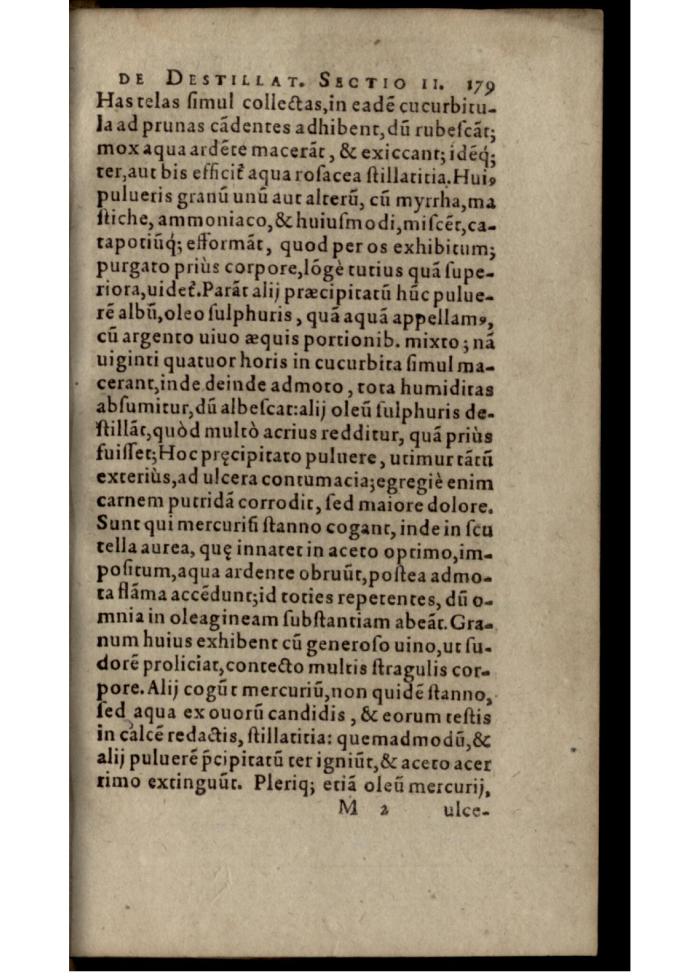 DE DESTILLAT. SECTIO II. 179
Has telas ſimul collectas, in eadē cucurbitu-
la ad prunas cādentes adhibent, dū rubeſcāt;
mox aqua ardēte macerāt, & exiccant; idēq́;
ter, aut bis efficit̃ aqua roſacea ſtillatitia. Huiꝰ
pulueris granū unū aut alterū, cū myrrha, ma
ſtiche, ammoniaco, & huiuſmodi, miſcēt, ca-
tapotiūq́; efformāt, quod per os exhibitum;
purgato priùs corpore, lōgè tutius quā ſupe-
riora, uidet̃. Parāt alij præcipitatū hūc pulue-
rē albū, oleo ſulphuris, quā aquā appellamꝰ,
cū argento uiuo æquis portionib. mixto; nā
uiginti quatuor horis in cucurbita ſimul ma-
cerant, inde deinde admoto, tota humiditas
abſumitur, dū albeſcat: alij oleū ſulphuris de-
ſtillāt, quòd multò acrius redditur, quā priùs
fuiſſet; Hoc pręcipitato puluere, utimur tātū
exteriùs, ad ulcera contumacia; egregiè enim
carnem putridā corrodit, ſed maiore dolore.
Sunt qui mercuriū ſtanno cogant, inde in ſcu
tella aurea, quę innatet in aceto optimo, im-
poſitum, aqua ardente obruūt, poſtea admo-
ta flāma accēdunt; id toties repetentes, dū o-
mnia in oleagineam ſubſtantiam abeāt. Gra-
num huius exhibent cū generoſo uino, ut ſu-
dorē proliciat, contecto multis ſtragulis cor-
pore. Alij cogūt mercuriū, non quidē ſtanno,
ſed aqua ex ouorū candidis, & eorum teſtis
in calcē redactis, ſtillatitia: quemadmodū, &
alij puluerē p̄cipitatū ter igniūt, & aceto acer
rimo extinguūt. Pleriq; etiā oleū mercurij,
M 2 ulce-